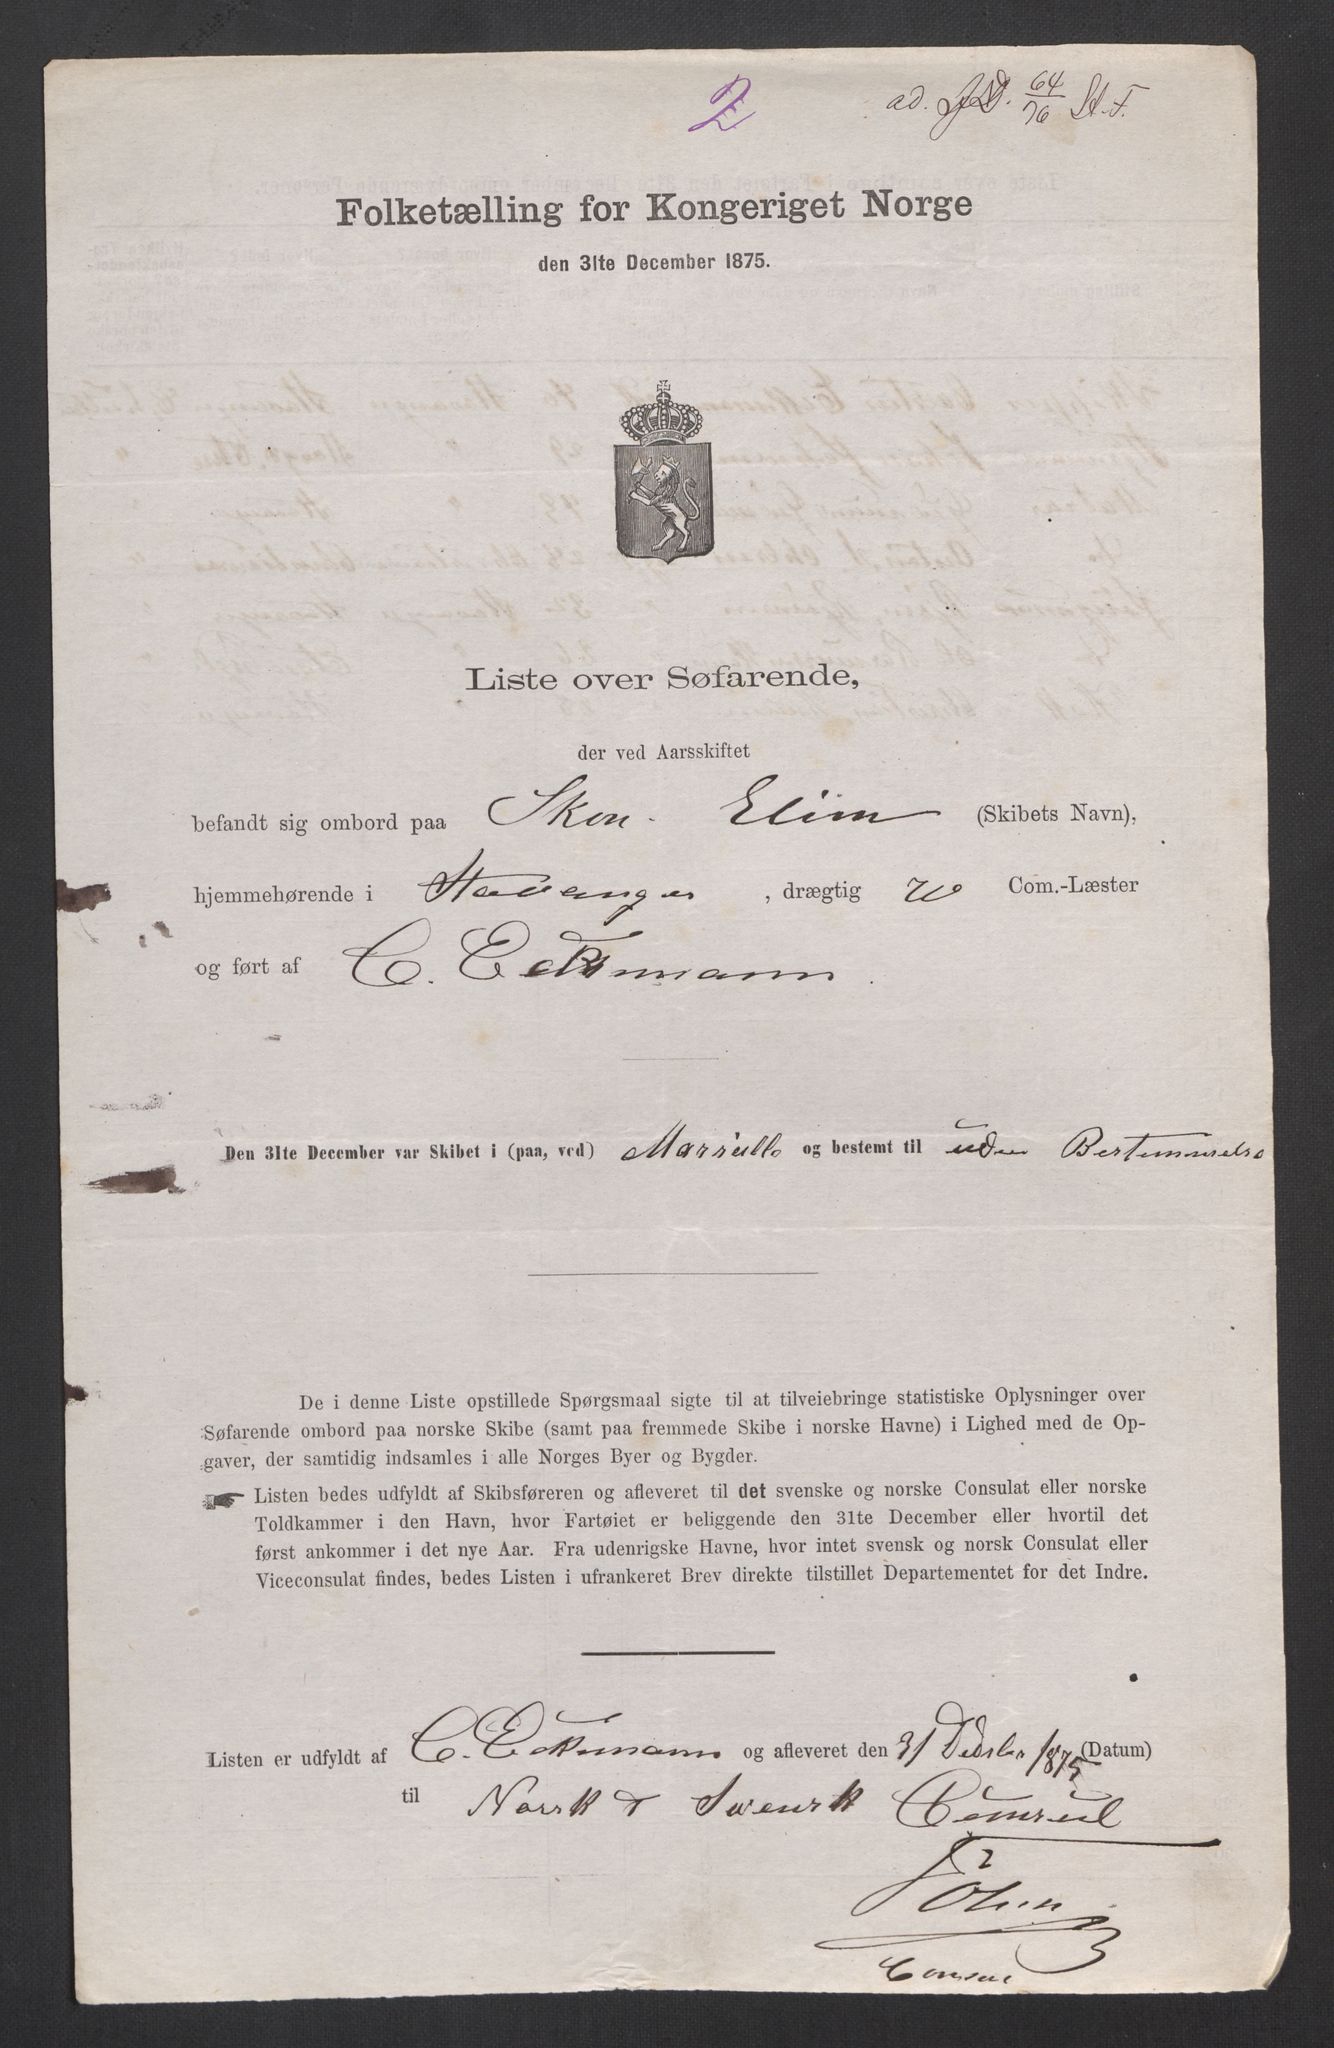 2
ad. JD. 64/76 St. F.
Folketælling for Kongeriget Norge
den 31te December 1875.
Liste over Søfarende,
der ved Aarsskiftet
befandt sig ombord paa Skon. Elim (Skibets Navn),
hjemmehørende i Stavanger, drægtig 70 Com.-Læster
og ført af C. Eckmann.
Den 31te December var Skibet i (paa, ved) Marseille og bestemt til uden Bestemmelse
De i denne Liste opstillede Spørgsmaal sigte til at tilveiebringe statistiske Oplysninger over
Søfarende ombord paa norske Skibe (samt paa fremmede Skibe i norske Havne) i Lighed med de Op-
gaver, der samtidig indsamles i alle Norges Byer og Bygder.
Listen bedes udfyldt af Skibsføreren og afleveret til det svenske og norske Consulat eller norske
Toldkammer i den Havn, hvor Fartøiet er beliggende den 31te December eller hvortil det
først ankommer i det nye Aar. Fra udenrigske Havne, hvor intet svensk og norsk Consulat eller
Viceconsulat findes, bedes Listen i ufrankeret Brev direkte tilstillet Departementet for det Indre.
Listen er udfyldt af C. Eckmann og afleveret den 31 1875 (Datum)
til Norsk & Svensk Consul
Consul